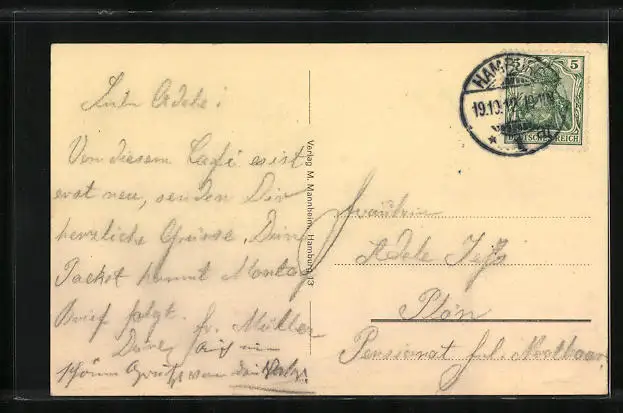 Liebe Adele!
Von diesem Café es ist
erst neu, senden Dir
herzliche Grüsse. Dein
Packet kommt Montag
Brief folgt. Fr. Müller
Auch ein
schönen Gruß von
Verlag M. Mannheim, Hamburg 13
HAMBURG
19.10.12
5
DEUTSCHES REICH
Fräulein
Adele
Plön
Pensionat frl.